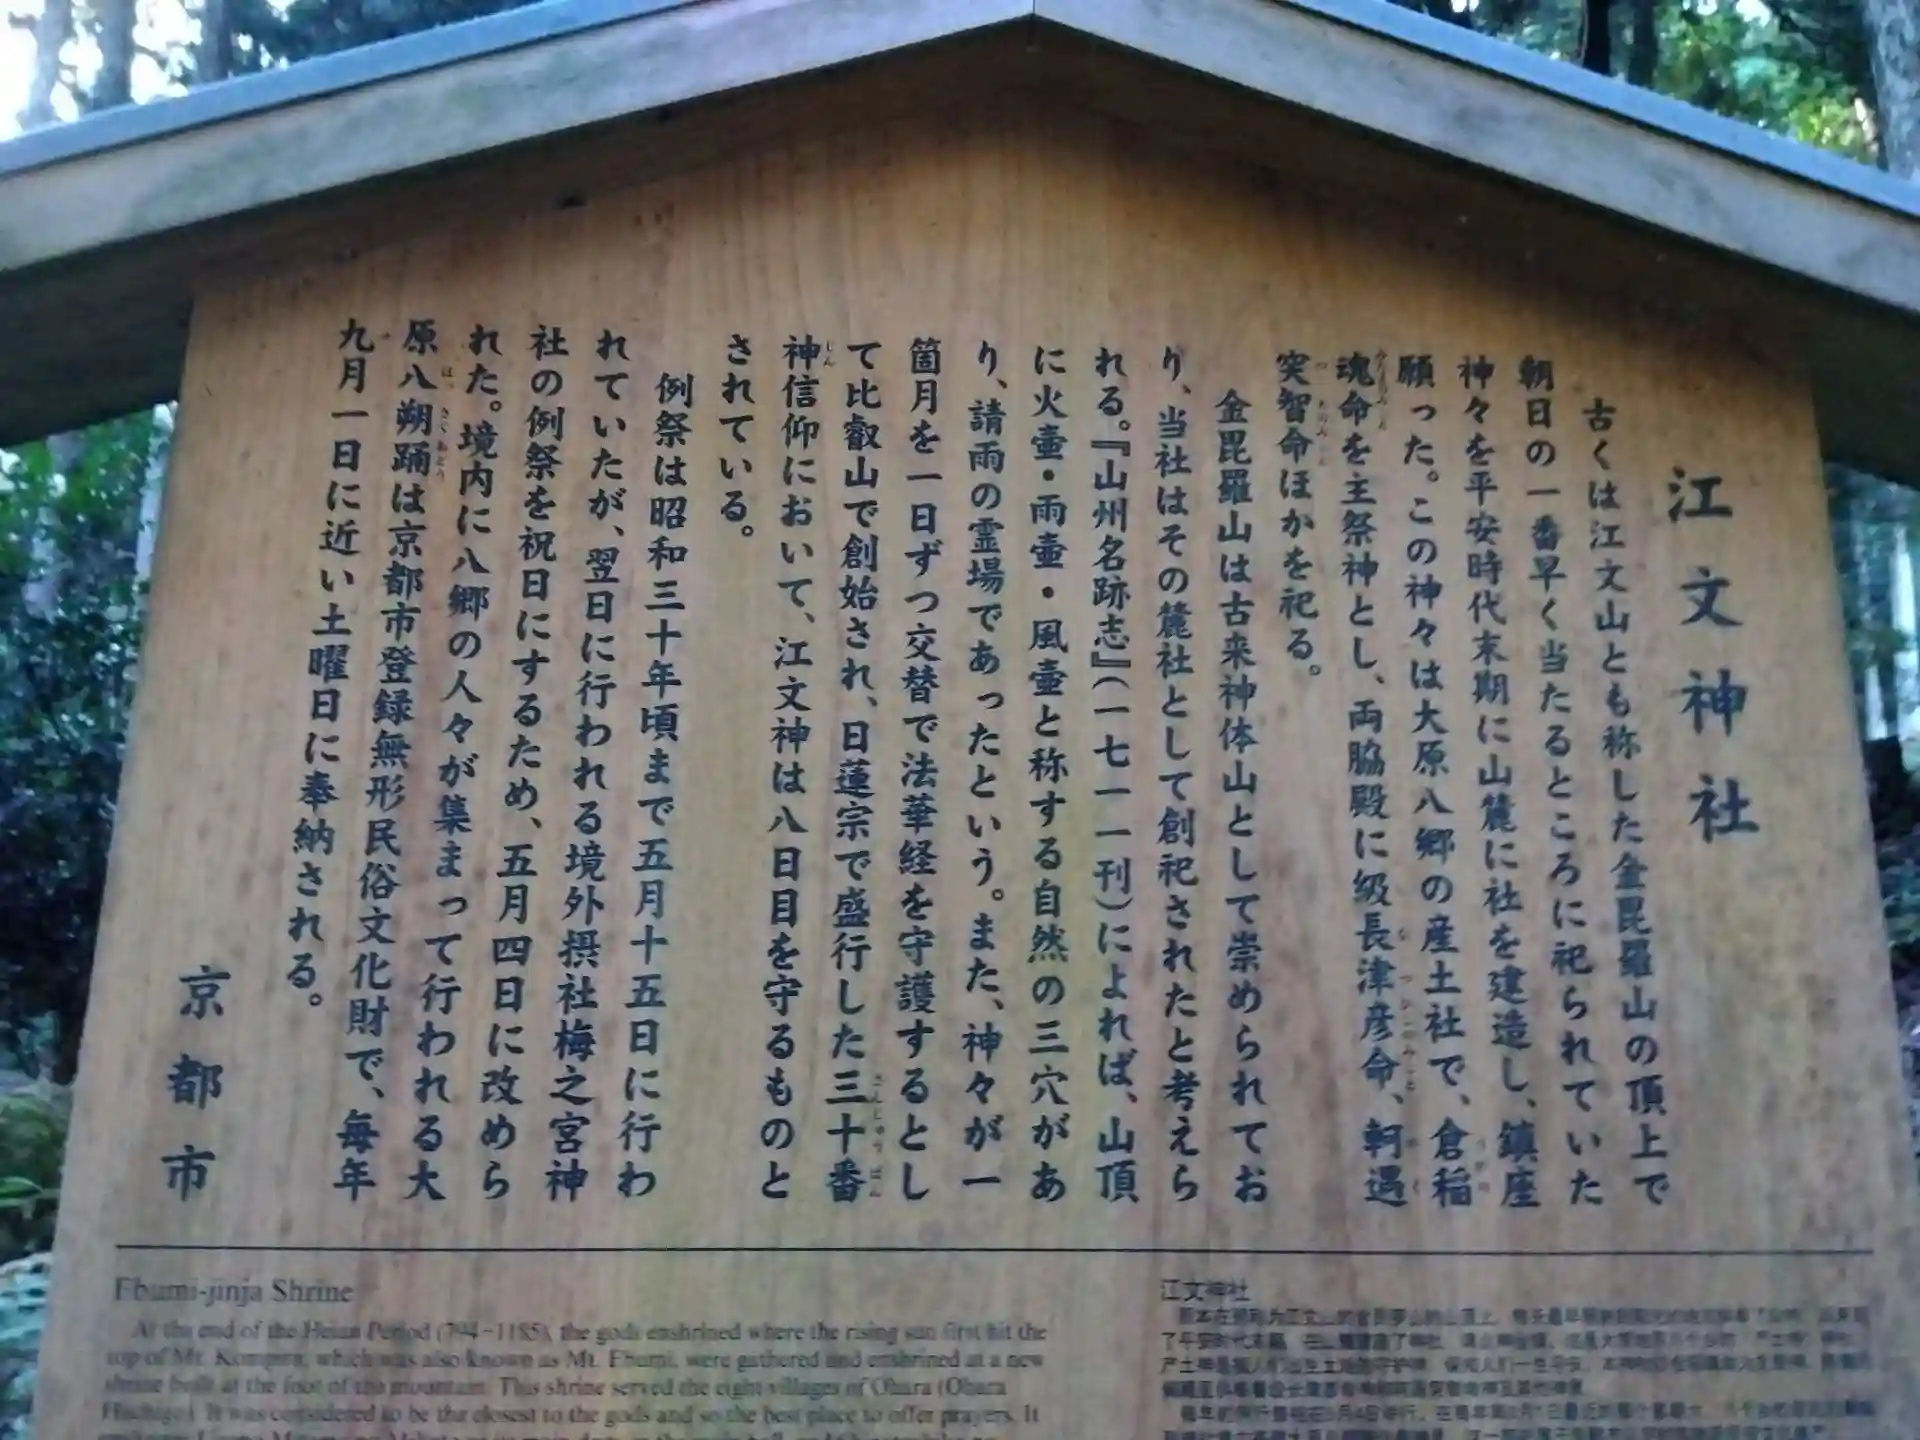 江文神社
古くは江文山とも称した金毘羅山の頂上で
朝日の一番早く当たるところに祀られていた
神々を平安時代末期に山麓に社を建造し、鎮座
願った。この神々は大原八郷の産土社で、倉稲
魂命を主祭神とし、両脇殿に級長津彦命、軻遇
突智命ほかを祀る。
金毘羅山は古来神体山として崇められてお
り、当社はその麓社として創祀されたと考えら
れる。『山州名跡志』(一七一一刊)によれば、山頂
に火壷・雨壷・風壷と称する自然の三穴があ
り、請雨の霊場であったという。また、神々が一
箇月を一日ずつ交替で法華経を守護するとし
て比叡山で創始され、日蓮宗で盛行した三十番
神信仰において、江文神は八日目を守るものと
されている。
例祭は昭和三十年頃まで五月十五日に行わ
れていたが、翌日に行われる境外摂社梅之宮神
社の例祭を祝日にするため、五月四日に改めら
れた。境内に八郷の人々が集まって行われる大
原八朔踊は京都市登録無形民俗文化財で、毎年
九月一日に近い土曜日に奉納される。
京都市
Ebumi-jinja Shrine
At the end of the Heian Period (794-1185), the gods enshrined where the rising sun first hit the
top of Mt. Kompira, which was also known as Mt. Ebumi, were gathered and enshrined at a new
shrine built at the foot of the mountain. This shrine served the eight villages of Ohara (Ohara
Hachigo). It was considered to be the closest to the gods and so the best place to offer prayers. It
江文神社